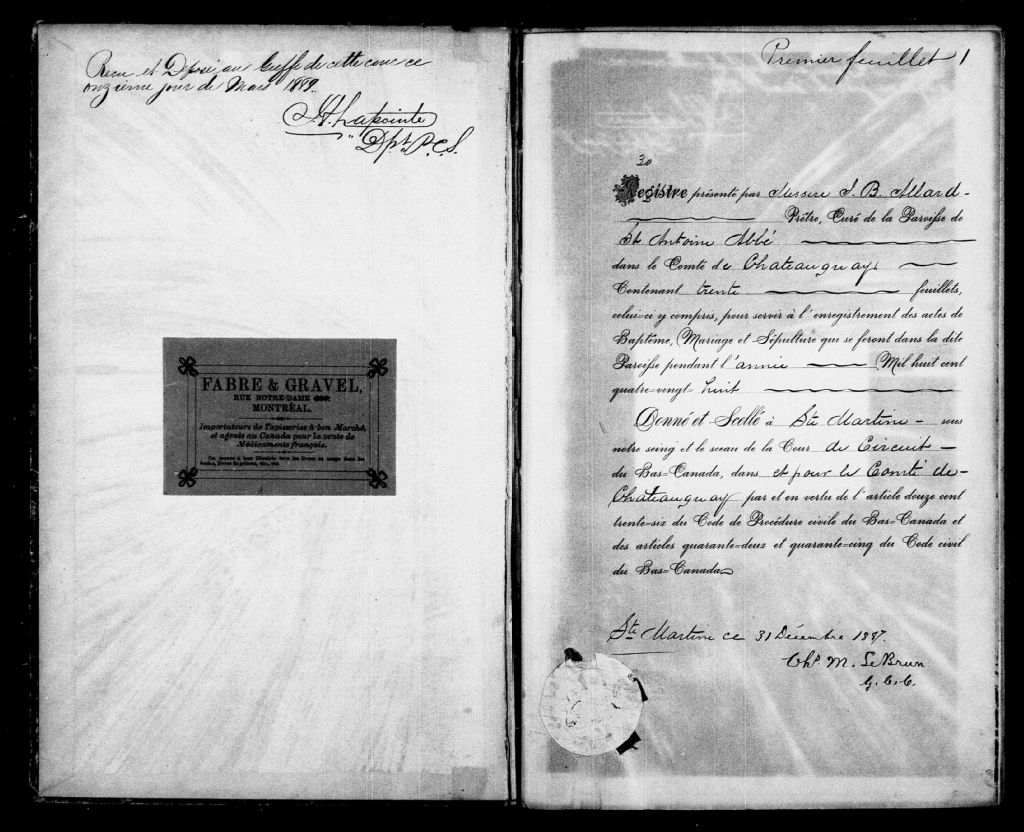 Recu et Déposé au Greffe de cette cour ce
onzième jour de Mars 1889.
Lapointe
Dpt P.C.S.
FABRE & GRAVEL,
RUE NOTRE-DAME
MONTRÉAL.
Importateurs de Tapisseries à bon Marché,
et agents au Canada pour la vente de
Médicaments français.
On trouve à leur librairie tous les livres en usage dans les
écoles, livres de prières, etc., etc.
Premier feuillet 1
30
Registre présenté par Messire J. B. Allard
Prêtre, Curé de la Paroisse de
St Antoine Abbé
dans le Comté de Chateauguay
Contenant trente feuillets,
celui-ci y compris, pour servir à l'enregistrement des actes de
Baptême, Mariage et Sépulture qui se feront dans la dite
Paroisse pendant l'année Mil huit cent
quatre-vingt huit
Donné et Scellé à Ste Martine sous
notre seing et le sceau de la Cour de Circuit
du Bas-Canada, dans et pour le Comté de
Chateauguay par et en vertu de l'article douze cent
trente-six du Code de Procédure civile du Bas-Canada et
des articles quarante-deux et quarante-cinq du Code civil
du Bas-Canada
Ste Martine ce 31 Décembre 1887.
Chs M. LeBrun
G.C.C.